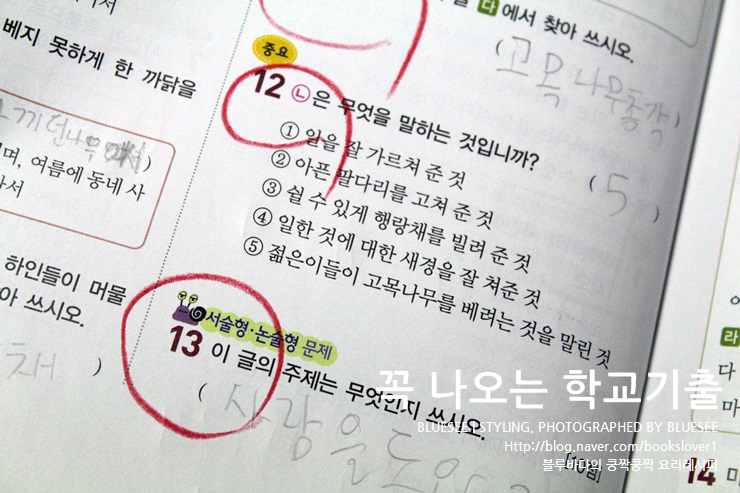 다 에서 찾아 쓰시오.
(고목나무총각)
베지 못하게 한 까닭을
며, 여름에 동네 사
하인들이 머물
쓰시오.
중요
12 ㉡은 무엇을 말하는 것입니까?
(5)
① 일을 잘 가르쳐 준 것
② 아픈 팔다리를 고쳐 준 것
③ 쉴 수 있게 행랑채를 빌려 준 것
④ 일한 것에 대한 새경을 잘 쳐준 것
⑤ 젊은이들이 고목나무를 베려는 것을 말린 것
서술형·논술형 문제
13 이 글의 주제는 무엇인지 쓰시오.
(사랑을도와
[10점]
라
다
마
14
꼭 나오는 학교기출
BLUESEE STYLING, PHOTOGRAPHED BY BLUESEE
http://blog.naver.com/bookslover1
블루바다의 쿵짝쿵짝 요리레시피